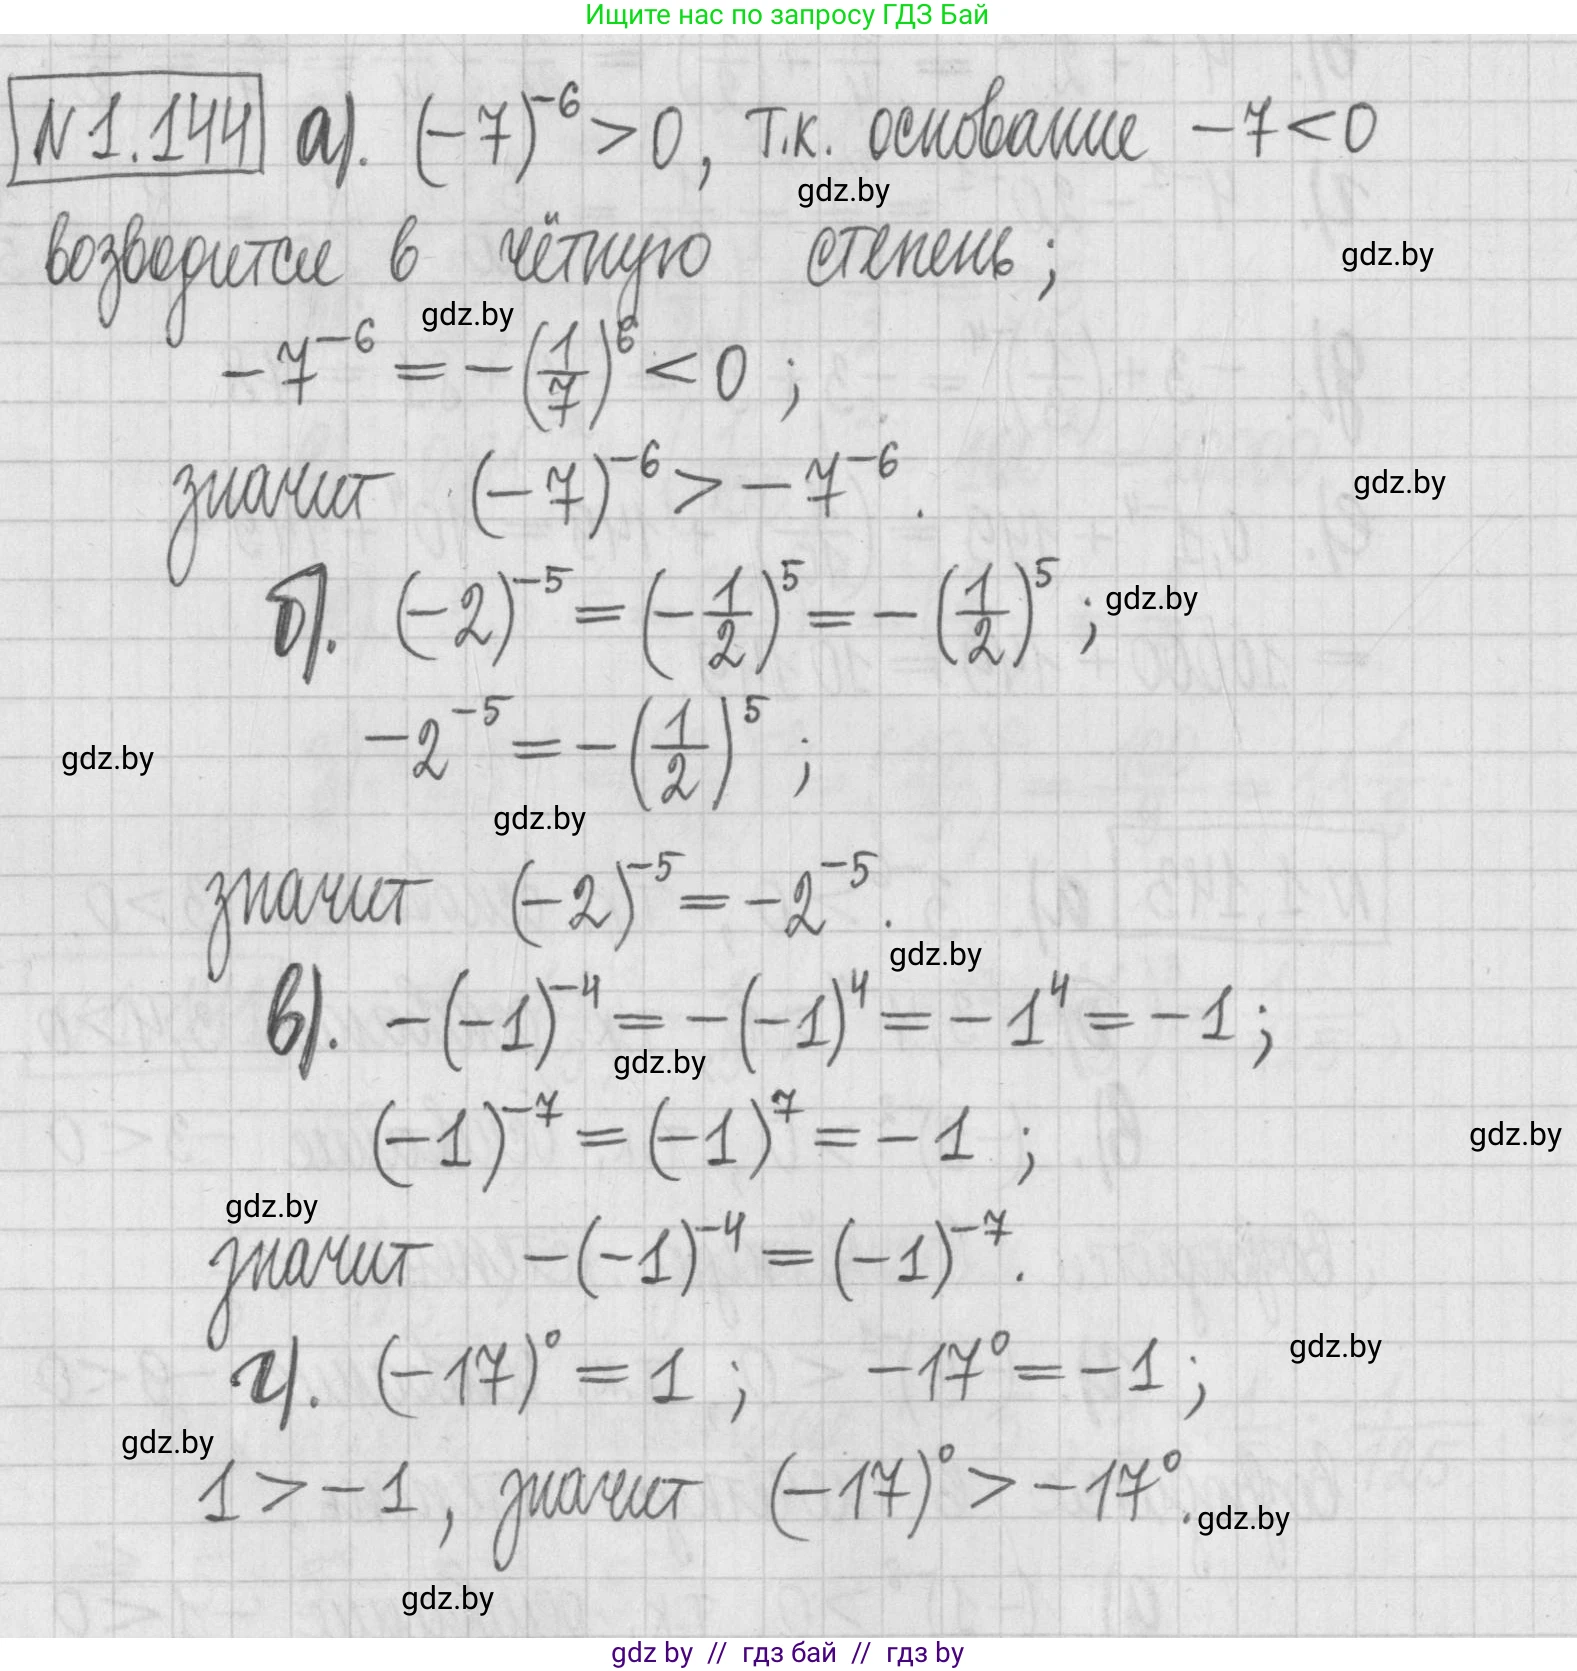 Ищите нас по запросу ГДЗ Бай
N 1.144 а). (-7)⁻⁶ > 0, т.к. основание -7 < 0
gdz.by
возводится в чётную степень;
gdz.by
gdz.by
-7⁻⁶ = -(1/7)⁶ < 0 ;
значит (-7)⁻⁶ > -7⁻⁶.
gdz.by
б). (-2)⁻⁵ = (-1/2)⁵ = -(1/2)⁵ ;
gdz.by
-2⁻⁵ = -(1/2)⁵ ;
gdz.by
gdz.by
значит (-2)⁻⁵ = -2⁻⁵.
gdz.by
в). -(-1)⁻⁴ = -(-1)⁴ = -1⁴ = -1 ;
gdz.by
(-1)⁻⁷ = (-1)⁷ = -1 ;
gdz.by
gdz.by
значит -(-1)⁻⁴ = (-1)⁻⁷.
г). (-17)⁰ = 1 ; -17⁰ = -1 ;
gdz.by
gdz.by
1 > -1, значит (-17)⁰ > -17⁰.
gdz.by
gdz.by
gdz by // гдз бай // гдз by